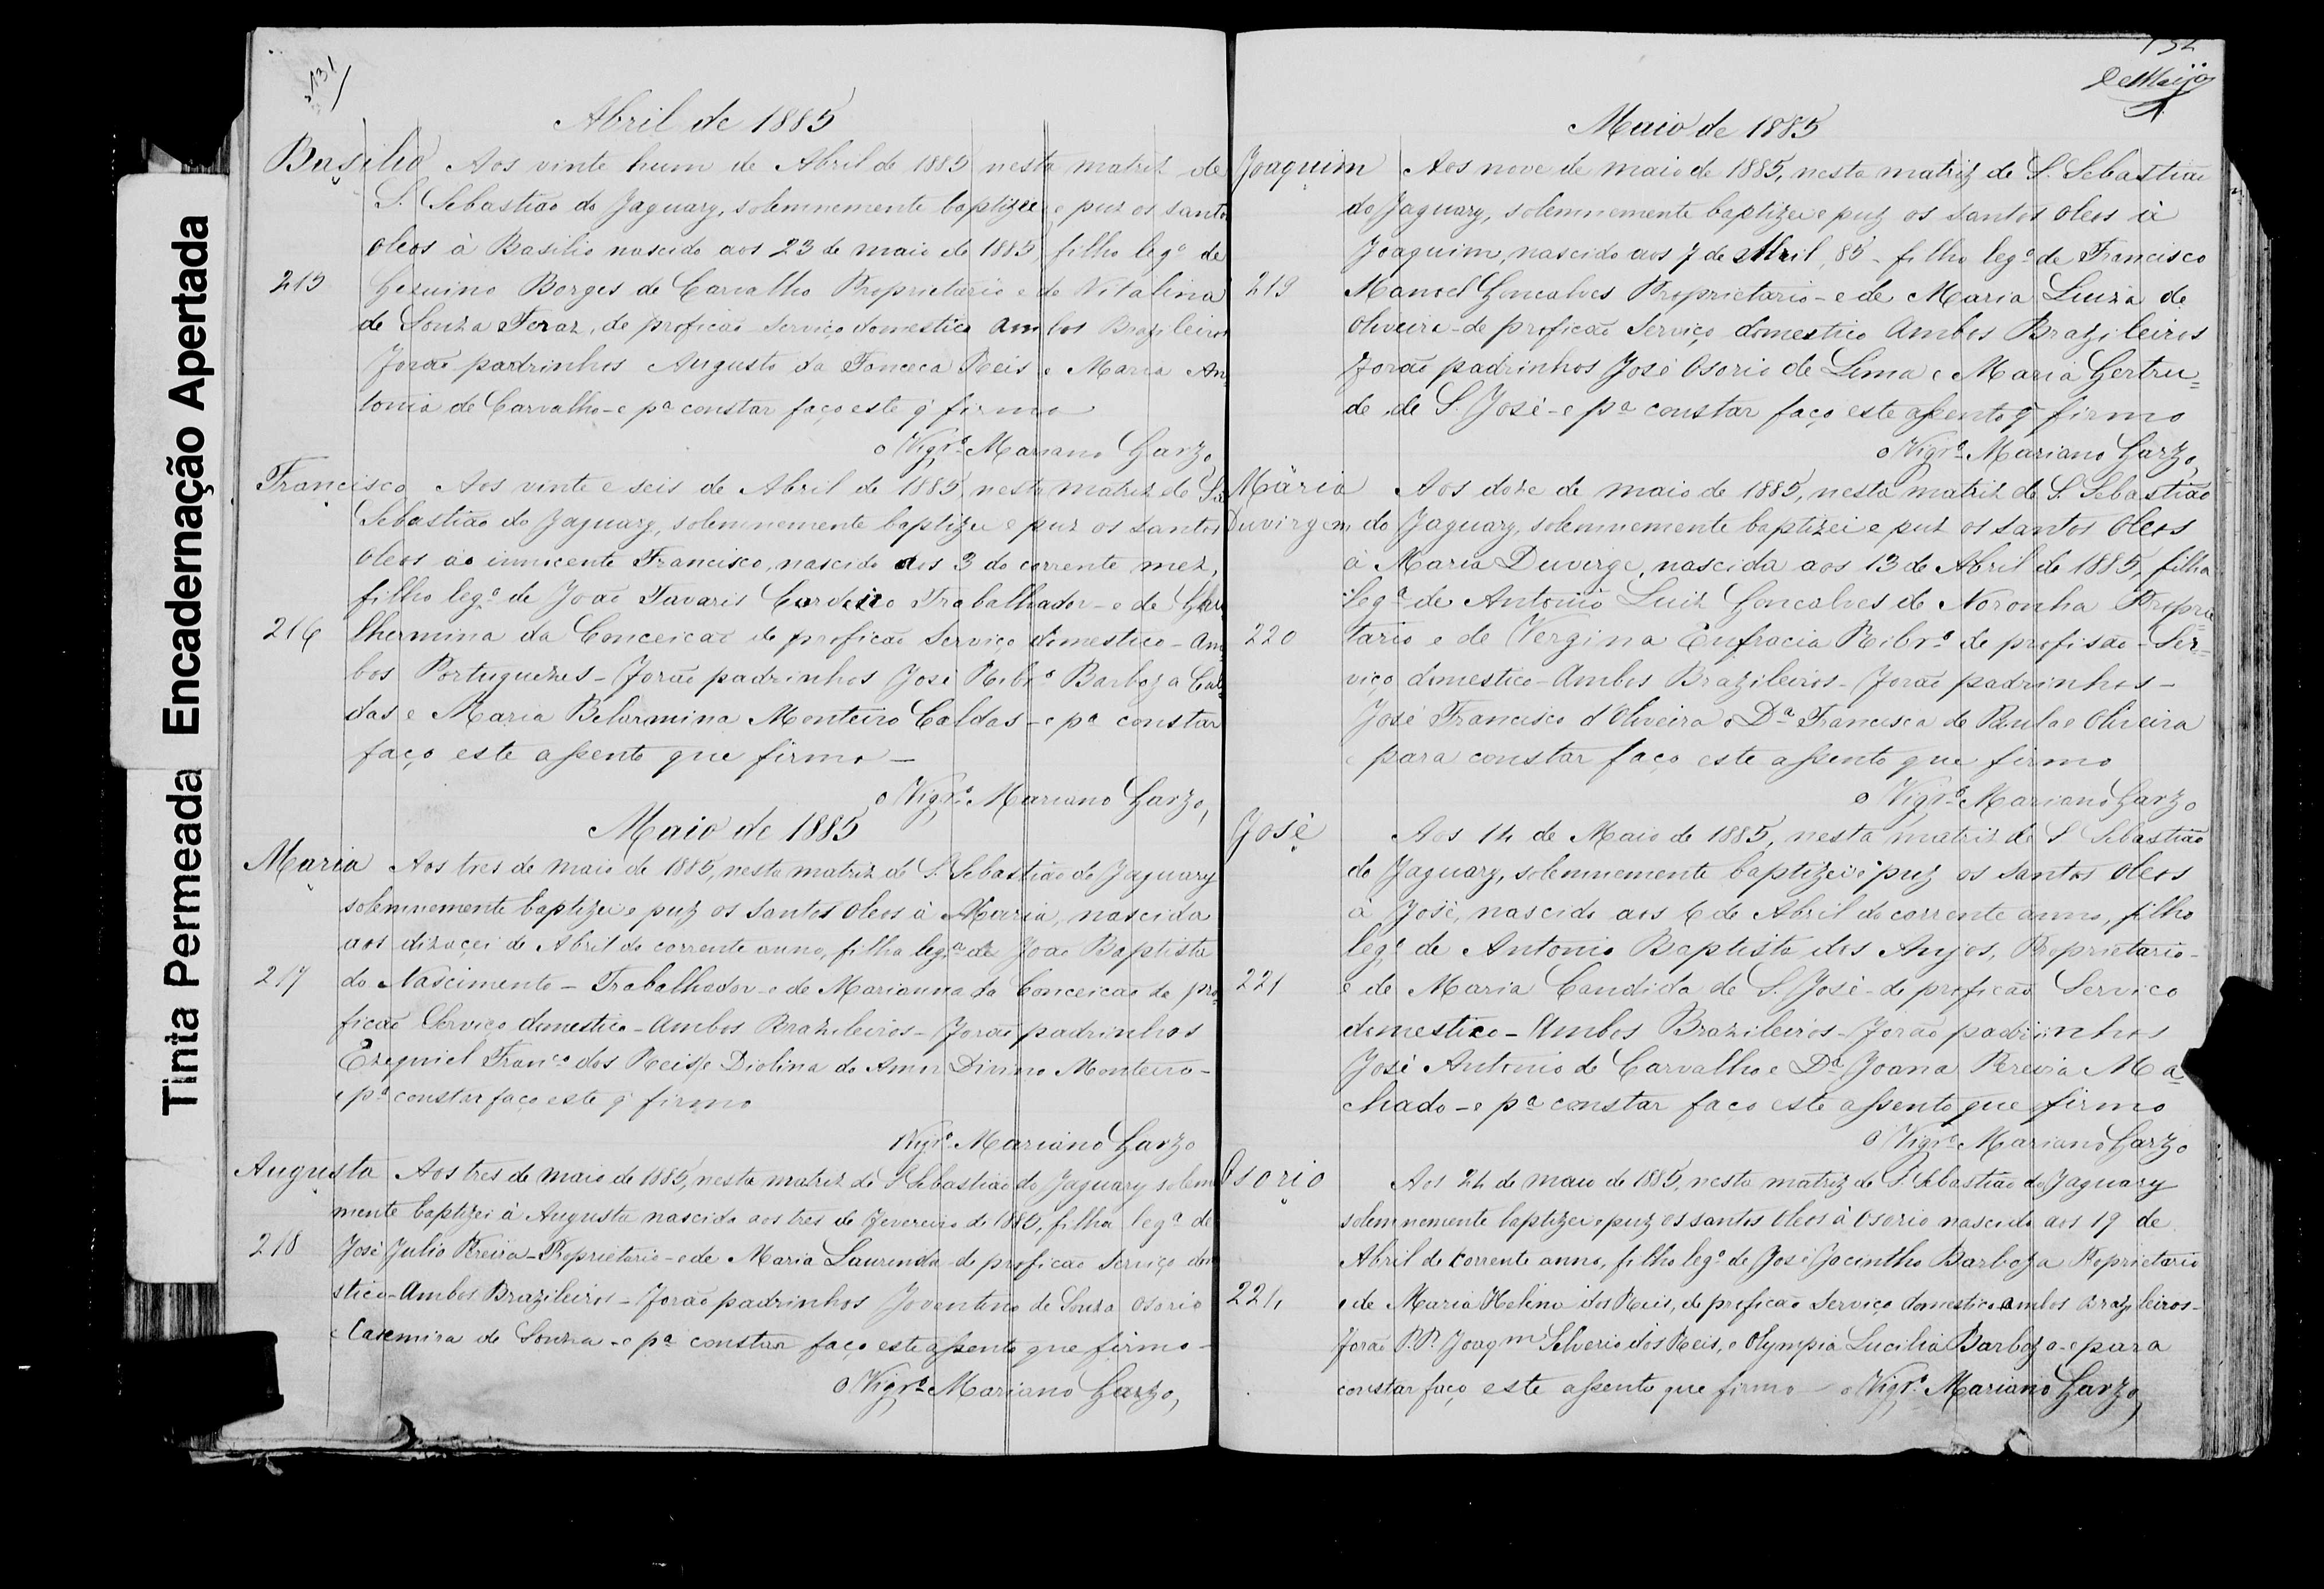 Encadernação Apertada
Tinta Permeada
131
Abril de 1885
Basilio Aos vinte hum de Abril de 1885 nesta matriz de
S. Sebastião do Jaguary, solemnemente baptizei e puz os santos
oleos à Basilio nascido aos 23 de maio de 1885 filho leg.º de
215 Gezuino Borges de Carvalho Proprietario e de Vitalina
de Souza Feraz, de proficão serviço domestico ambos Brazileiros
Forão padrinhos Augusto da Fonceca Reis e Maria An
tonia de Carvalho - e pª constar faço este q' firmo
o Vigrº Mariano Garzo
Francisco Aos vinte e seis de Abril de 1885 nesta matriz de S.
Sebastião do Jaguary, solemnemente baptizei e puz os santos
oleos ao innocente Francisco, nascido aos 3 do corrente mez,
filho leg.º de João Tavaris Cordeiro Trabalhador - e de
216 lhermina da Conceicão de proficão serviço domestico - Am
bos Portuguezes - Forão padrinhos José Ribrº Barboza Cal
das e Maria Belarmina Monteiro Caldas - e pª constar
faço este assento que firmo -
o Vigrº Mariano Garzo,
Maio de 1885
Maria Aos tres de maio de 1885, nesta matriz de S. Sebastião do Jaguary
solemnemente baptizei e puz os santos oleos à Maria, nascida
aos dizacei de Abril do corrente anno, filha leg.ª de João Baptista
217 do Nascimento - Trabalhador - e de Marianna da Conceicão de pro
ficão Serviço domestico - Ambos Brazileiros - Forão padrinhos
Ezequiel Franco dos Reis e Diolina do Amor Divino Monteiro -
e pª constar faço este q' firmo
Vigrº Mariano Garzo
Augusta Aos tres de maio de 1885, nesta matriz de S. Sebastião do Jaguary solem
mente baptizei à Augusta nascida aos tres de Fevereiro de 1885, filha leg.ª de
218 José Julio Pereira - Proprietario - e de Maria Laurinda de proficão serviço dom
stico - Ambos Brazileiros - Forão padrinhos Joventino de Souza Osorio
e Casemira de Souza - e pª constar faço este assento que firmo -
o Vigrº Mariano Garzo,
132
De Maijo
Maio de 1885
Joaquim Aos nove de maio de 1885, nesta matriz de S. Sebastião
do Jaguary, solemnemente baptizei e puz os santos oleos à
Joaquim, nascido aos 7 de Abril, 85 - filho leg.º de Francisco
219 Manoel Goncalves Proprietario - e de Maria Luiza de
Oliveira - de proficão Serviço domestico Ambos Brazileiros
Forão padrinhos José Osorio de Lima e Maria Gertru=
de, de S. José - e pª constar faço este assento q' firmo
o Vigrº Mariano Garzo,
Maria Aos doze de maio de 1885, nesta matriz de S. Sebastião
Duvirgem do Jaguary, solemnemente baptizei e puz os santos oleos
à Maria Duvirge, nascida aos 13 de Abril de 1885, filha
leg.ª de Antonio Luiz Goncalves de Noronha Proprie
220 tario e de Vergina Eufracia Ribrº de profisão - Ser=
viço domestico - Ambos Brazileiros - Forão padrinhos -
José Francisco d'Oliveira e Dª Francisca de Paula e Oliveira
e para constar faço este assento que firmo
o Vigrº Mariano Garzo
José Aos 14 de Maio de 1885, nesta matriz de S Sebastião
do Jaguary, solemnemente baptizei e puz os santos oleos
à José, nascido aos 6 de Abril do corrente anno, filho
leg.º de Antonio Baptista dos Anjos, Proprietario -
221 e de Maria Candida de S. José - de proficão Servico
domestico - Ambos Brazileiros - Forão padrinhos
José Antonio de Carvalho e Dª Joana Pereira Ma
chado - e pª constar faço este assento que firmo
o Vigrº Mariano Garzo
Osorio Aos 24 de maio de 1885, nesta matriz de S. Sebastião do Jaguary
solemnemente baptizei e puz os santos oleos à Osorio nascido aos 19 de
Abril do corrente anno, filho leg.º de José Jacintho Barboza Proprietario
221, e de Maria Helena dos Reis, de proficão Serviço domestico ambos Brazileiros -
forão P.P. Joaqm Silverio dos Reis, e Olympia Lucilia Barboza - e para
constar faço este assento que firmo - o Vigrº Mariano Garzo,